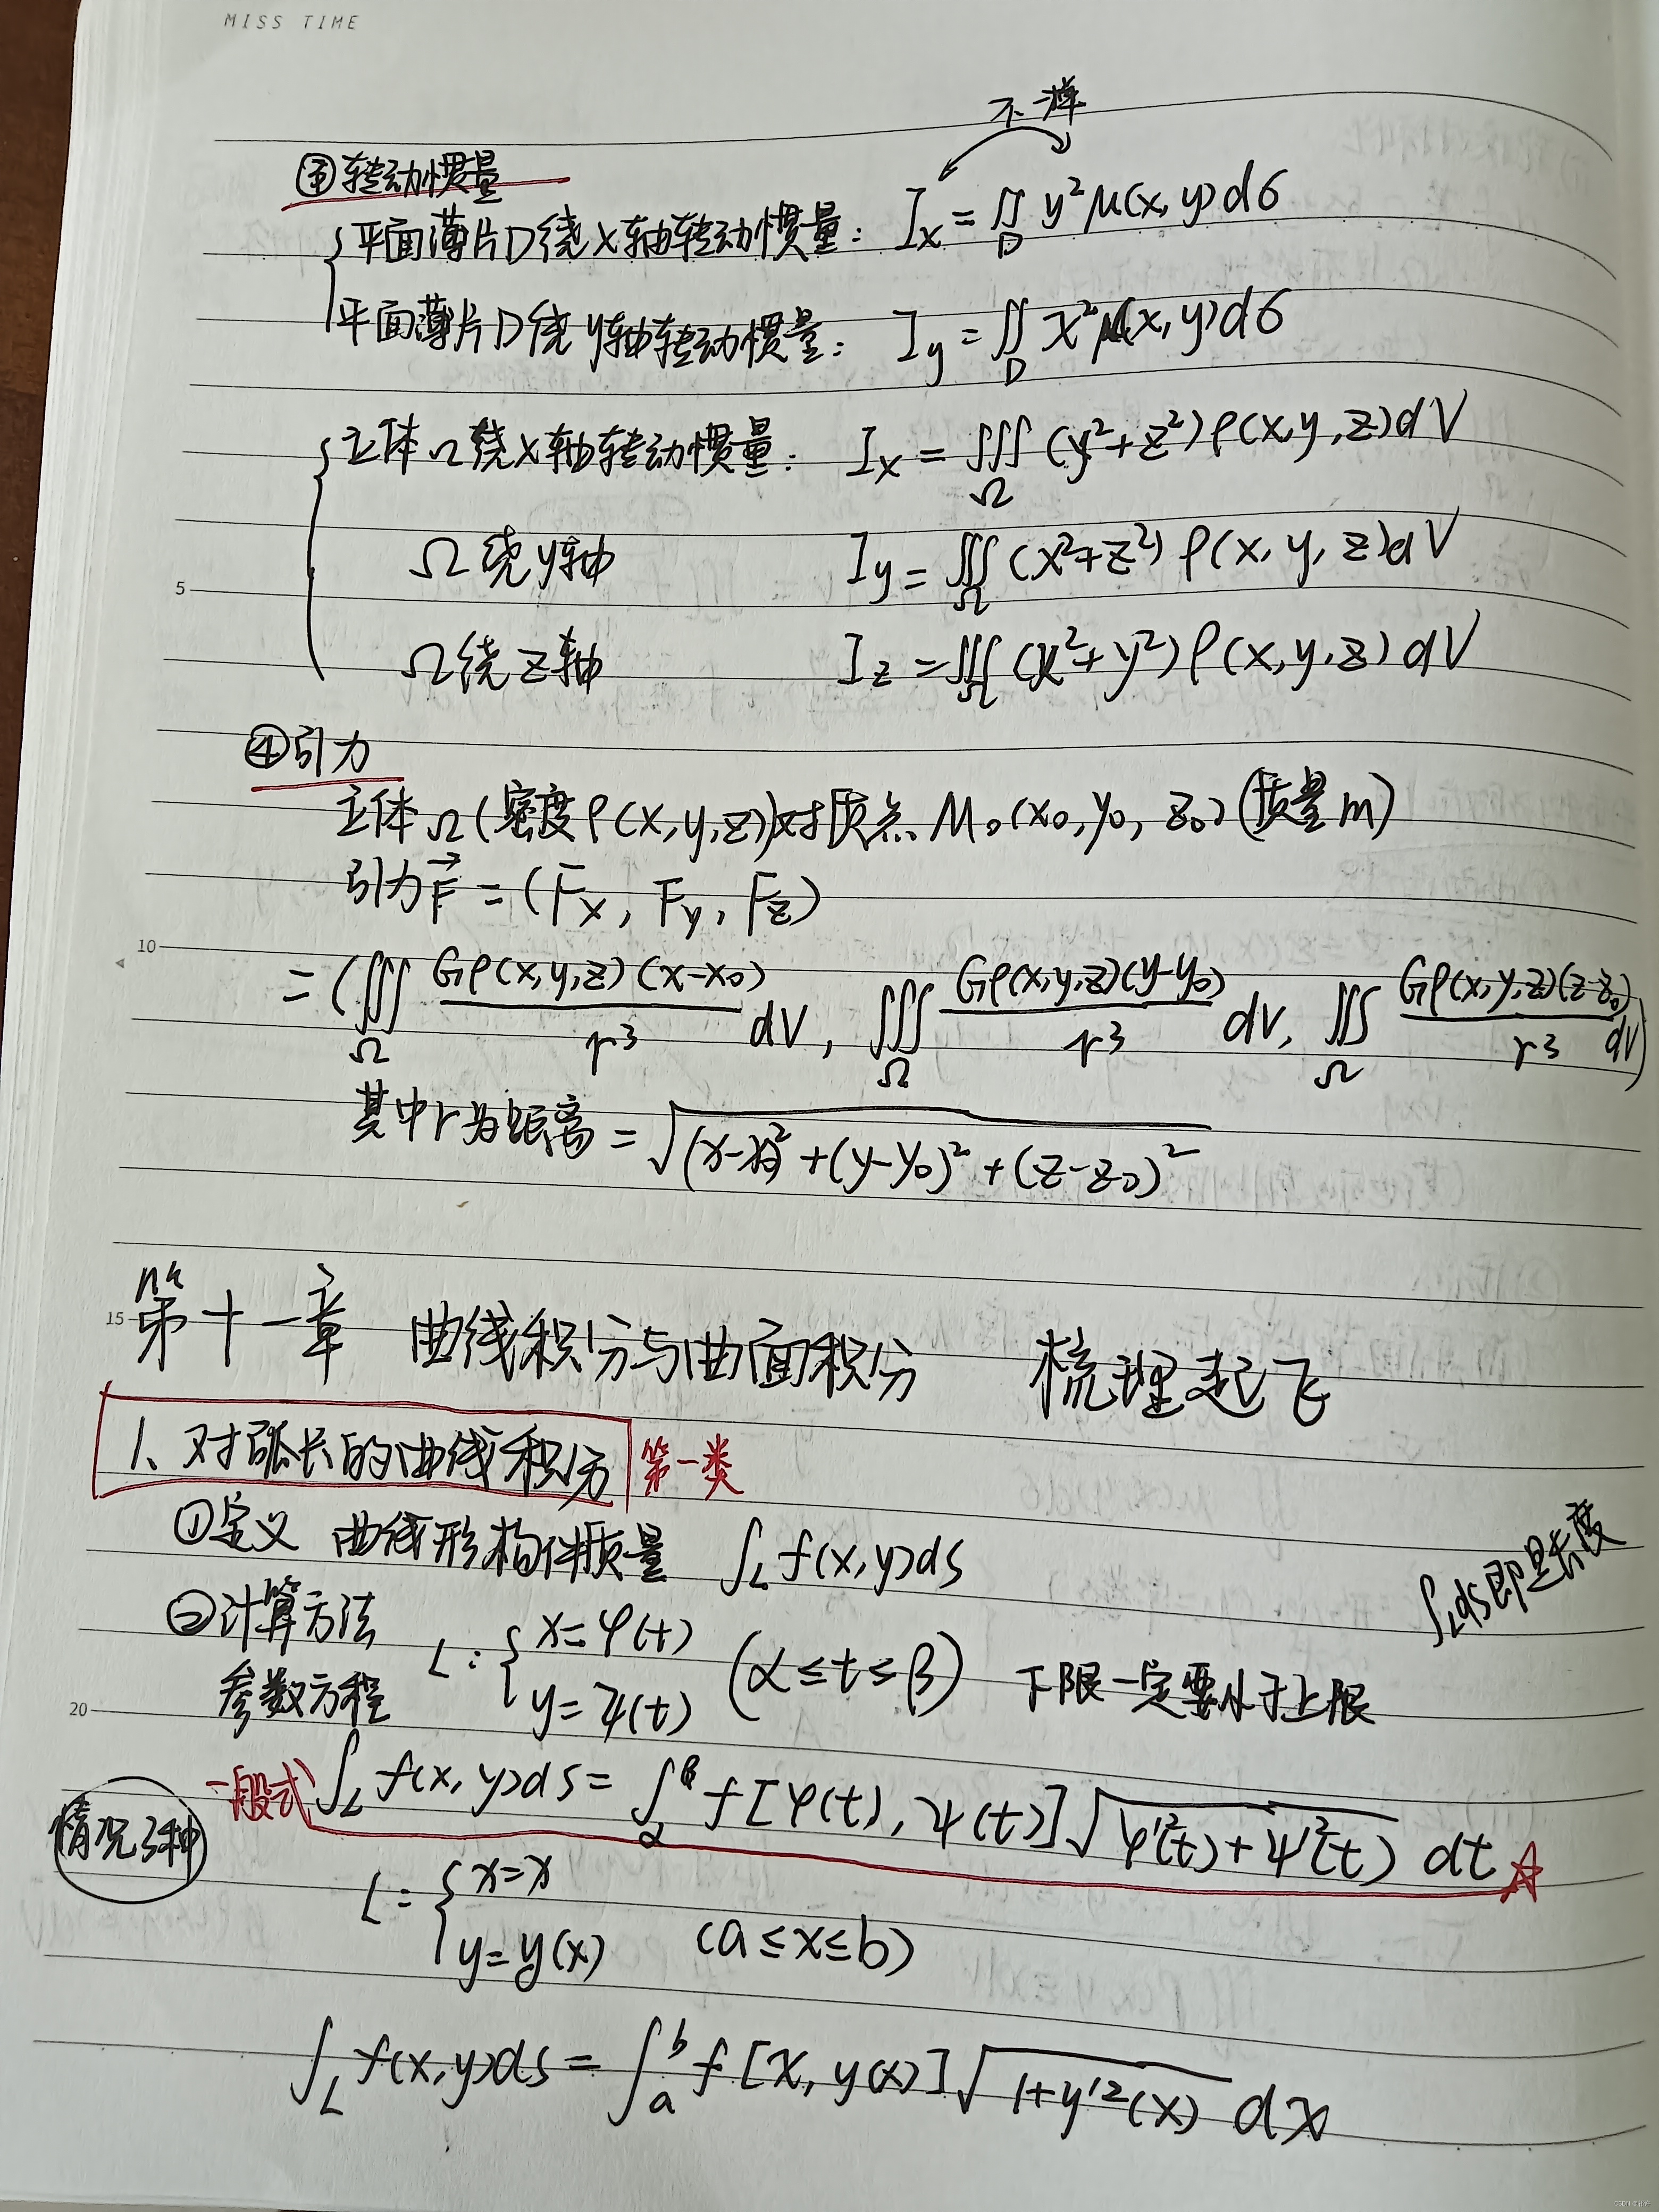 MISS TIME
不一样
③转动惯量
平面薄片D绕x轴转动惯量: Iₓ = ∬_D y²μ(x,y)dσ
平面薄片D绕y轴转动惯量: I_y = ∬_D x²μ(x,y)dσ
立体Ω绕x轴转动惯量: Iₓ = ∭_Ω (y²+z²)ρ(x,y,z)dV
Ω绕y轴 I_y = ∭_Ω (x²+z²)ρ(x,y,z)dV
5
Ω绕z轴 I_z = ∭_Ω (x²+y²)ρ(x,y,z)dV
④引力
立体Ω(密度ρ(x,y,z))对质点M₀(x₀,y₀,z₀)(质量m)
引力F⃗ = (Fₓ, F_y, F_z)
10
= (∭_Ω Gρ(x,y,z)(x-x₀)/r³ dV, ∭_Ω Gρ(x,y,z)(y-y₀)/r³ dV, ∭_Ω Gρ(x,y,z)(z-z₀)/r³ dV)
其中r为距离 = √((x-x₀)²+(y-y₀)²+(z-z₀)²)
15
第十一章 曲线积分与曲面积分 梳理起飞
1、对弧长的曲线积分 第一类
①定义 曲线形构件质量 ∫_L f(x,y)ds
∫_L ds即是长度
②计算方法
参数方程 L: {x=φ(t) y=ψ(t) (α≤t≤β) 下限一定要小于上限
20
一般式 ∫_L f(x,y)ds = ∫_α^β f[φ(t),ψ(t)]√(φ'²(t)+ψ'²(t)) dt ☆
情况3种
L: {x=x y=y(x) (a≤x≤b)
∫_L f(x,y)ds = ∫_a^b f[x,y(x)]√(1+y'²(x)) dx